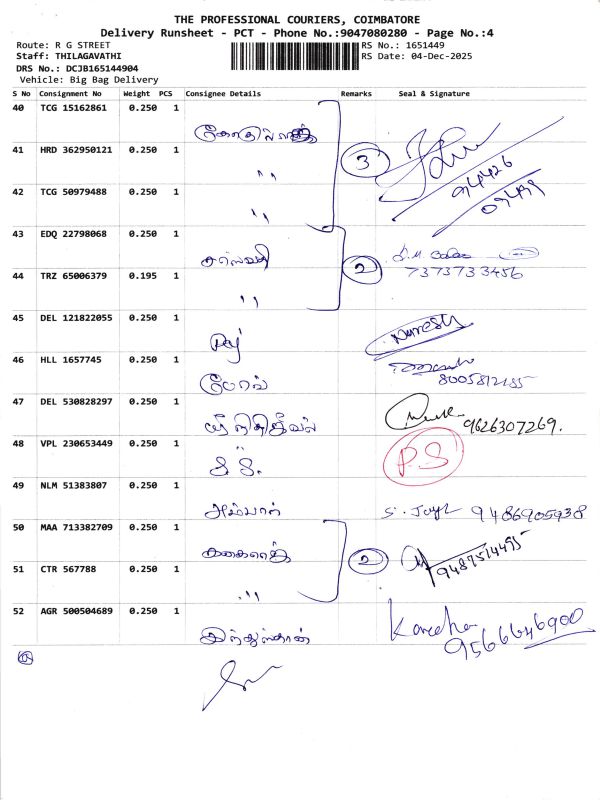 THE PROFESSIONAL COURIERS, COIMBATORE
Delivery Runsheet - PCT - Phone No.:9047080280 - Page No.:4
Route: R G STREET
RS No.: 1651449
Staff: THILAGAVATHI
RS Date: 04-Dec-2025
DRS No.: DCJB165144904
Vehicle: Big Bag Delivery
S No Consignment No Weight PCS Consignee Details Remarks Seal & Signature
40 TCG 15162861 0.250 1
41 HRD 362950121 0.250 1
,, 3
42 TCG 50979488 0.250 1
,, 94426
09499
43 EDQ 22798068 0.250 1
2
44 TRZ 65006379 0.195 1 7373733456
,,
45 DEL 121822055 0.250 1
Raj Naresh
46 HLL 1657745 0.250 1
47 DEL 530828297 0.250 1
9626307269.
48 VPL 230653449 0.250 1
P.S
49 NLM 51383807 0.250 1
அம்பாள் 9486905938
50 MAA 713382709 0.250 1
2
51 CTR 567788 0.250 1 9487514495
,,
52 AGR 500504689 0.250 1
இந்துஸ்தான் 9566646900